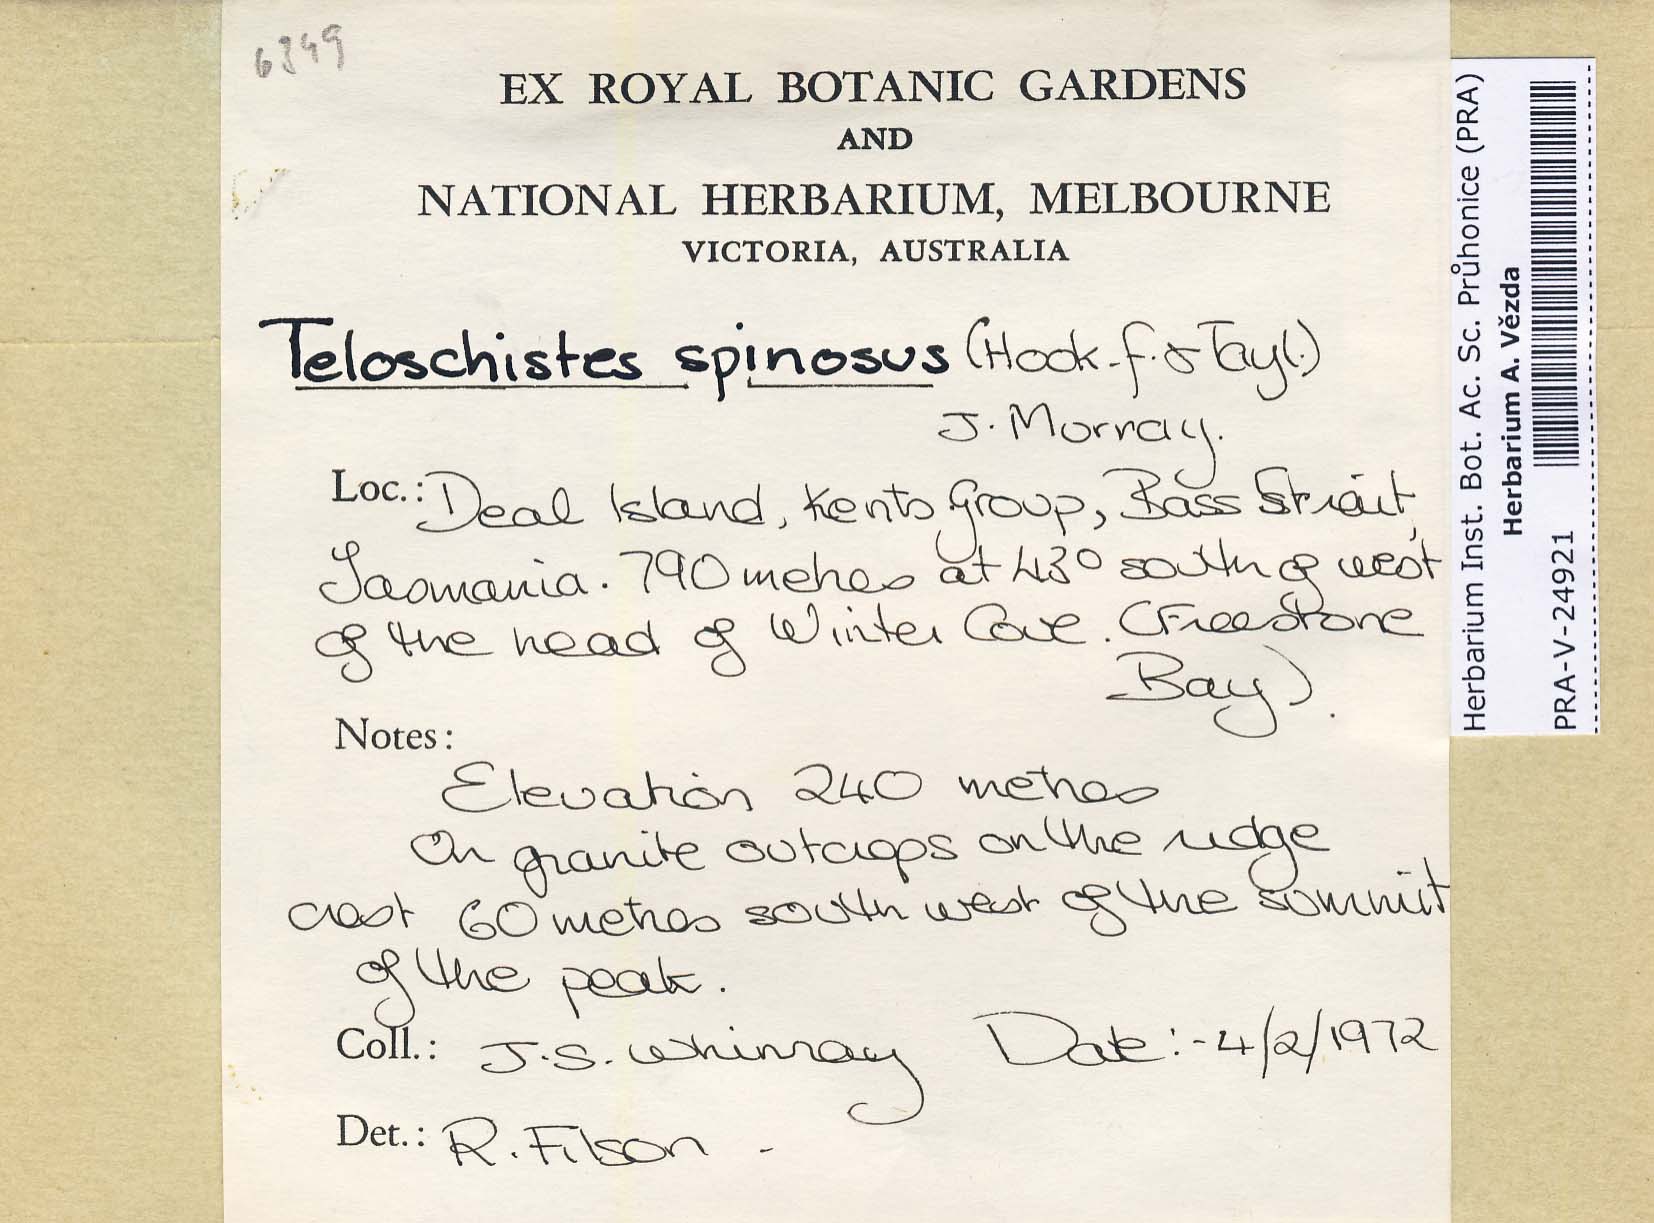 6349
EX ROYAL BOTANIC GARDENS
AND
NATIONAL HERBARIUM, MELBOURNE
VICTORIA, AUSTRALIA
Teloschistes spinosus (Hook. f. & Tayl.)
J. Murray.
Loc.: Deal Island, Kents Group, Bass Strait,
Tasmania. 790 metres at 43° south of west
of the head of Winter Cove. (Freestone
Bay).
Notes:
Elevation 240 metres
On granite outcrops on the ridge
crest 60 metres south west of the summit
of the peak.
Coll.: J.S. Whinray Date:- 4/2/1972
Det.: R. Filson -
Herbarium Inst. Bot. Ac. Sc. Průhonice (PRA)
Herbarium A. Vězda
PRA-V-24921